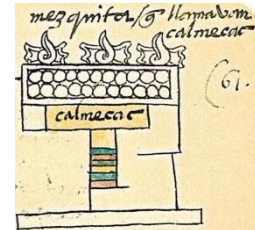 mezquita / q̃ llamavan
calmecac
calmecac
(61.